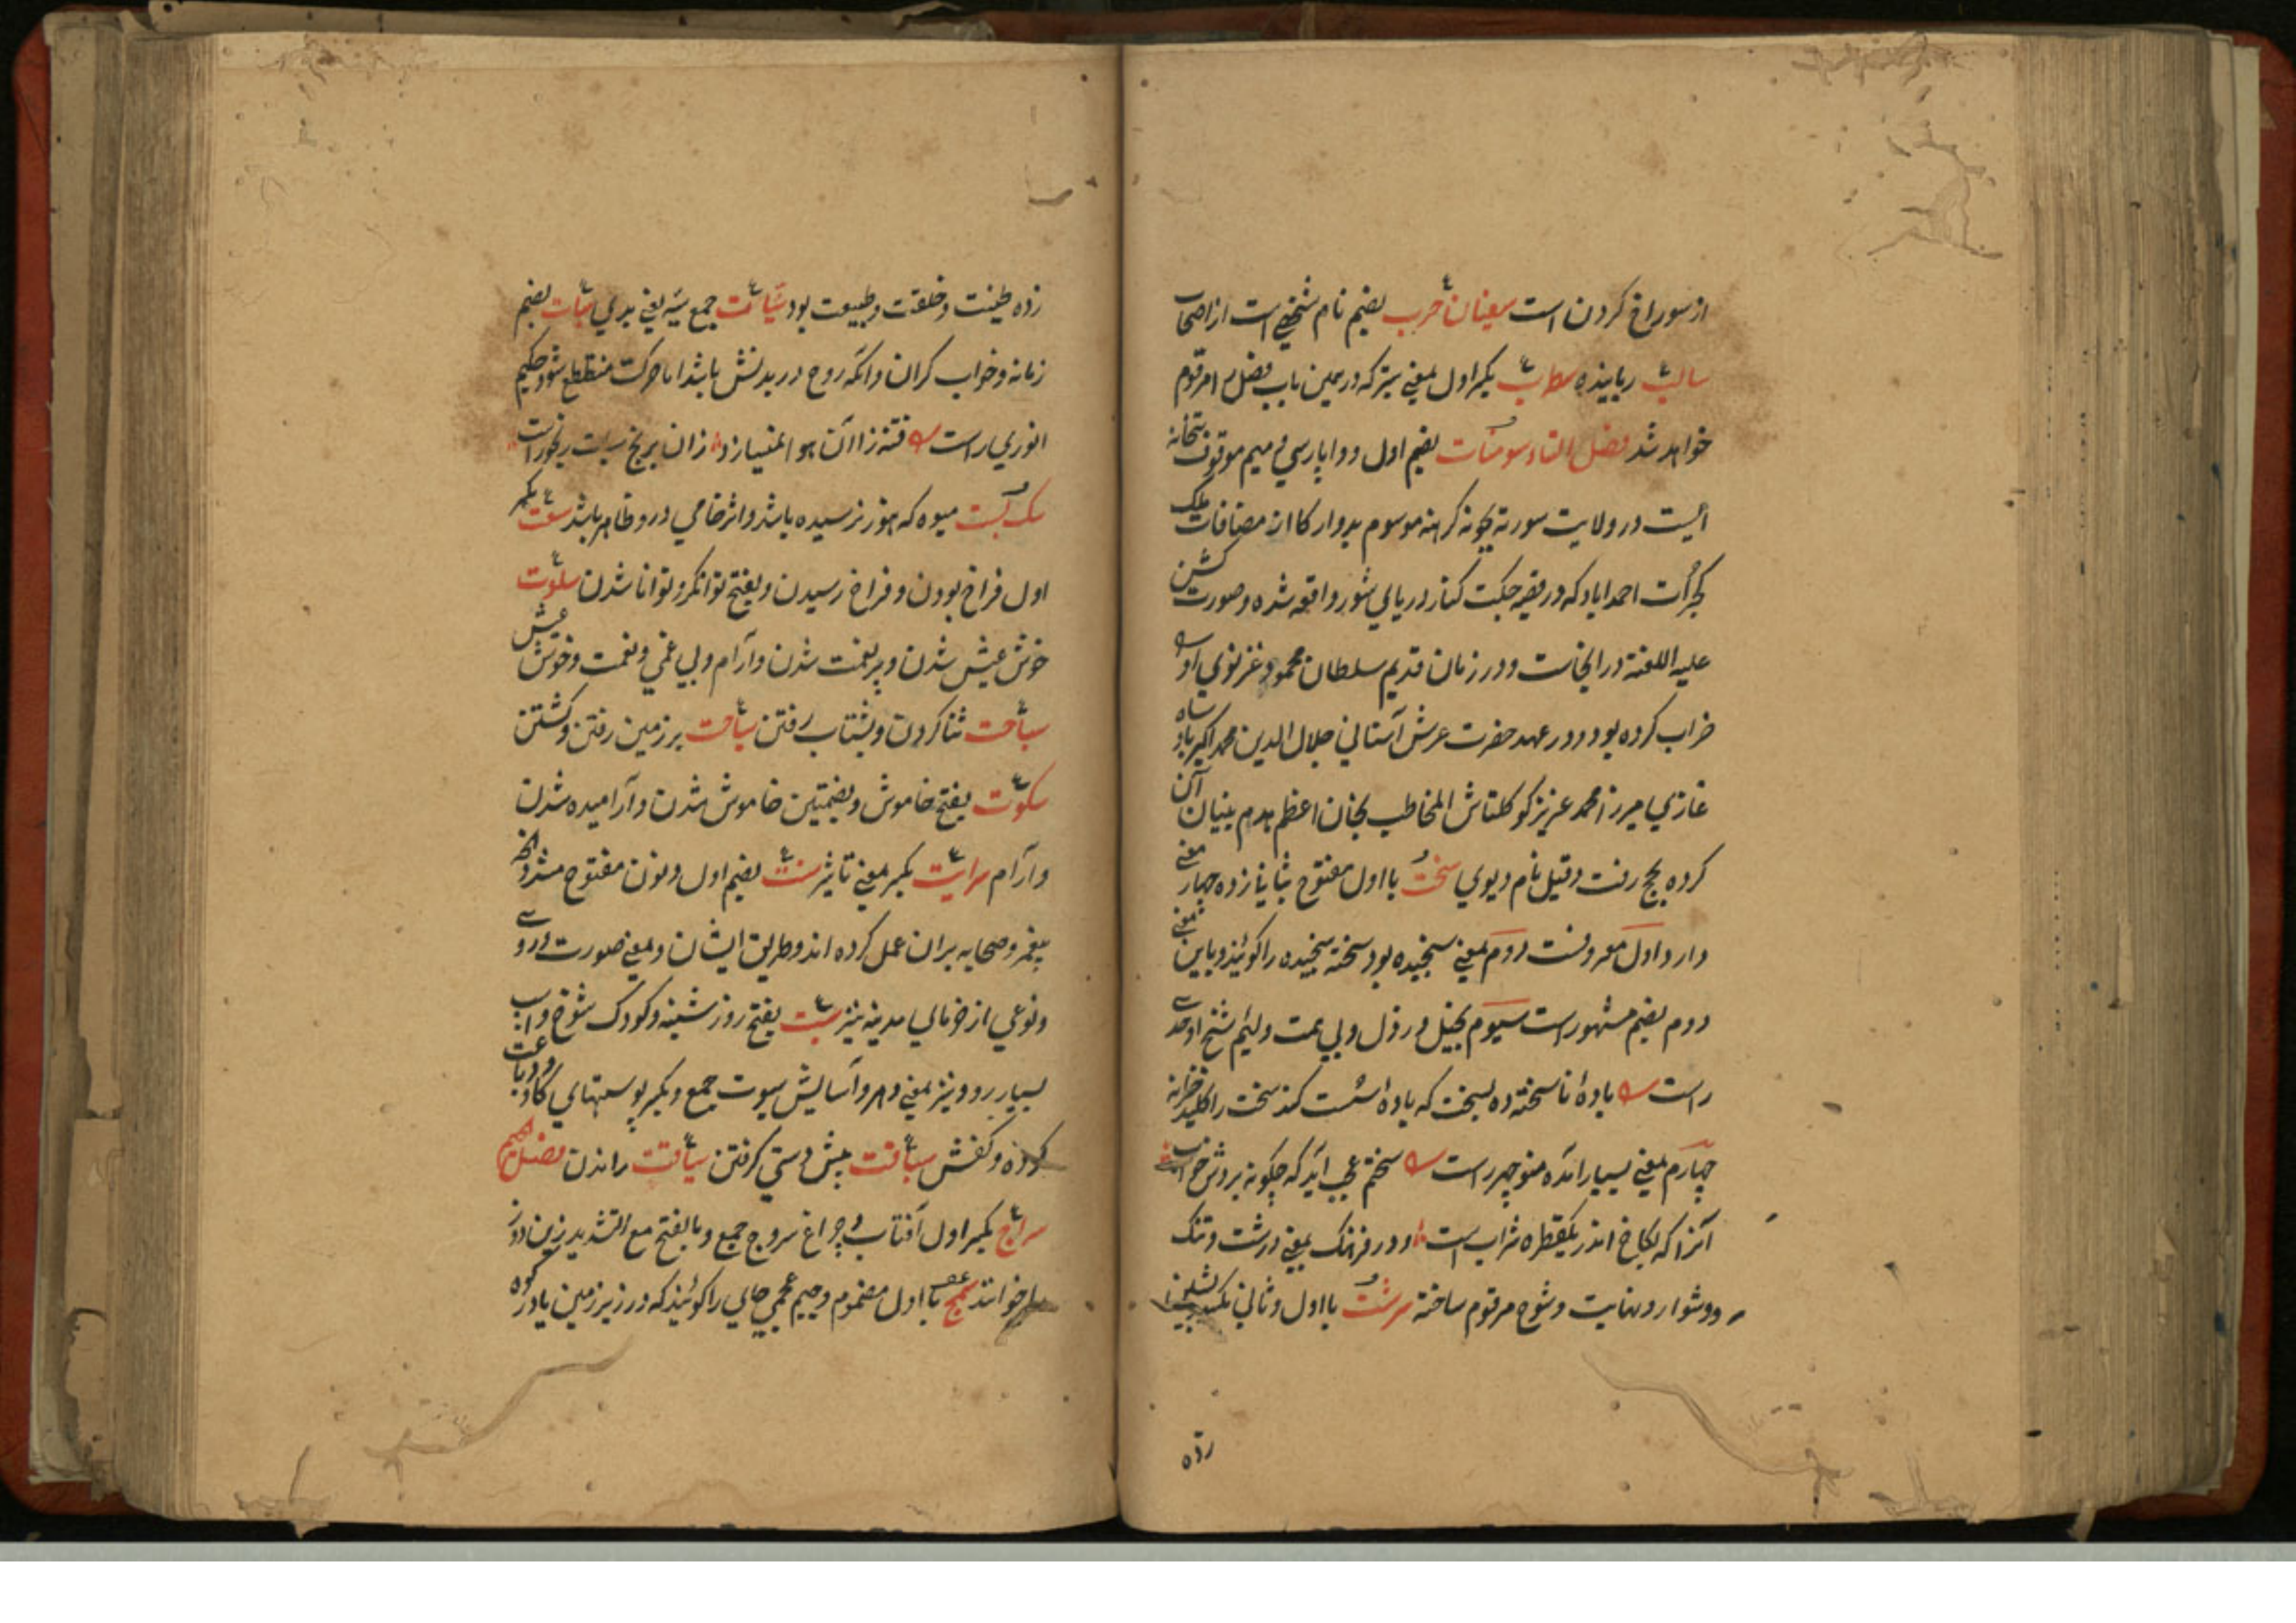 از سوراخ کردن است سفیان حرب بضم نام شخصی است از اصحاب
سالب رباینده بکسر اول بمعنی که در همین باب فصل مرقوم
خواهد شد فصل التاء سومنات بضم اول و واو پارسی و میم موقوف بتخانه
ایست در ولایت سورته موسوم بدوارکا از مضافات ملک
گجرات احمداباد که در قصبه جکت کنار دریای شور واقعه شده و صورت کشن
علیه اللعنة در انجاست و در زمان قدیم سلطان محمود غزنوی اورا
خراب کرده بود و در عهد حضرت عرش آستانی جلال الدین محمد اکبر بادشاه
غازی میرزا محمد عزیز کوکلتاش المخاطب بخان اعظم هدم بنیان آن
کرده بحج رفت و قیل نام دیوی سخت با اول مفتوح بثانی زده چهار معنی
دارد اول معروفست دوم بمعنی سنجیده بود سخته سنجیده را گویند و باین معنی
دوم بضم مشهور است سیوم بخیل و رذل و بی همت و لئیم شیخ اوحدی
راست بادهٔ ناسخته ده بسخت که باده سست کند سخت را کلید خزانه
چهارم بمعنی بسیار آمده منوچهر راست سختم عجب اید که چگونه بردش خواب
آنرا که بکاخ اندر یکقطره شراب است و در فرهنک بمعنی درشت و تنک
و دشوار و نهایت و شوخ مرقوم ساخته سرشت با اول و ثانی مکسور بشین
زده
زده طینت و خلقت و طبیعت بود سیّات جمع سیّه یعنی بدی سبات بضم
زمانه و خواب کران و آنکه روح در بدنش باشد اما حرکت منقطع شود حکیم
انوری راست فتنه را زان بر نج سبات رنجور است
میوه که هنوز نرسیده باشد و اثر خامی درو ظاهر باشد سعت بکسر
اول فراخ بودن و فراخ رسیدن و بفتح توانکر و توانا شدن سلوت
خوش عیش شدن و پر نعمت شدن و آرام و بی غمی و نعمت و خوش عیش
سباحت شنا کردن و بشتاب رفتن سیاحت بر زمین رفتن و کشتن
سکوت بفتح خاموش و بضمتین خاموش شدن و آرامیده شدن
و آرام سرایت بکسر بمعنی تاثیر سنت بضم اول و نون مفتوح مشدد انچه
پیغمبر و صحابه بران عمل کرده اند و طریق ایشان و بمعنی صورت و روی
و نوعی از خرمای مدینه نیز سبت بفتح روز شنبه و کودک شوخ و اسب
بسیار رو و نیز بمعنی دهر و آسایش سبوت جمع و بکسر پوستهای کاو دباغت
کرده و کفش سباقت پیش دستی کرفتن سیاقت راندن فصل الجیم
سراج بکسر اول آفتاب و چراغ سروج جمع و بالفتح مع التشدید زین دوز
را خوانند سمج با اول مضموم و جیم عجمی جای را گویند که در زیر زمین یا در کوه